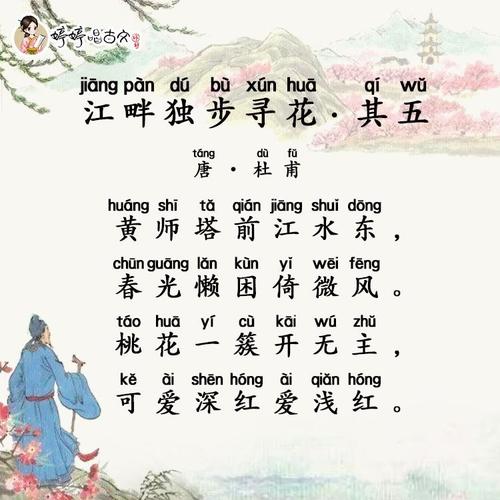 婷婷唱古文
jiāng pàn dú bù xún huā qí wǔ
江畔独步寻花·其五
táng dù fǔ
唐·杜甫
huáng shī tǎ qián jiāng shuǐ dōng
黄师塔前江水东，
chūn guāng lǎn kùn yǐ wēi fēng
春光懒困倚微风。
táo huā yí cù kāi wú zhǔ
桃花一簇开无主，
kě ài shēn hóng ài qiǎn hóng
可爱深红爱浅红。